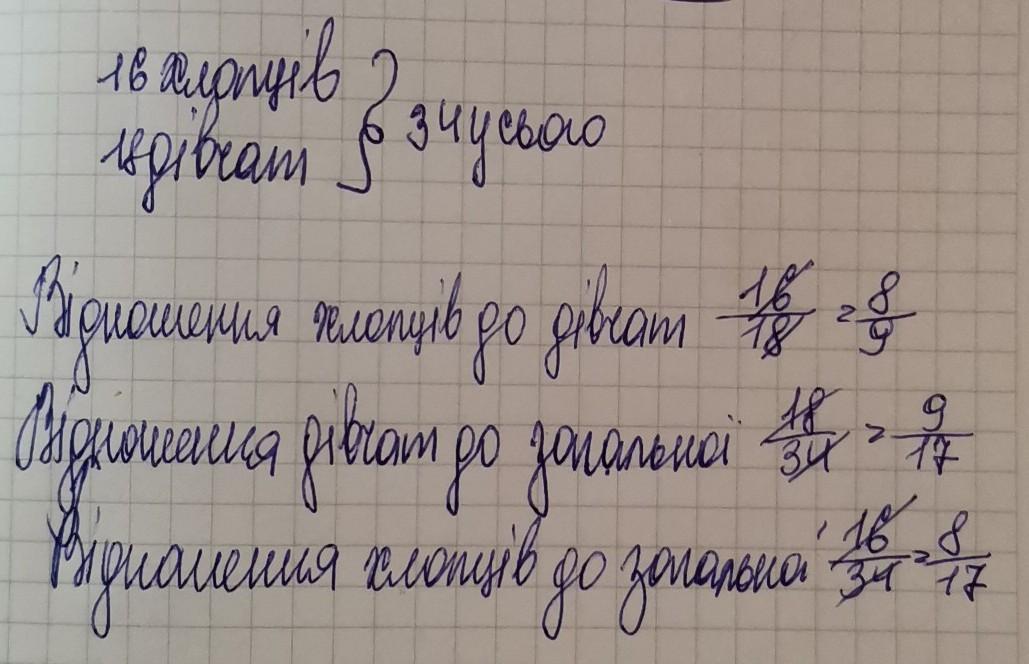 16 хлопців
18 дівчат } 34 усього
Відношення хлопців до дівчат 16/18 = 8/9
Відношення дівчат до загальної 18/34 = 9/17
Відношення хлопців до загальної 16/34 = 8/17